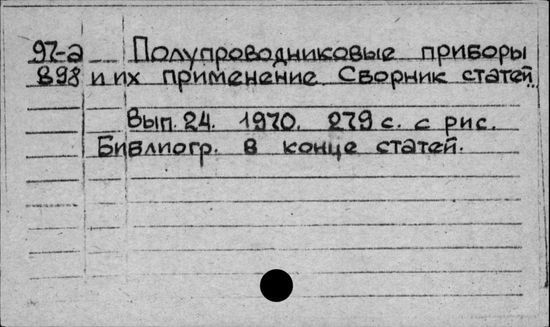 97-а Полупроводниковые приборы
898 и их применение Сборник статей..
Вып. 24. 1970. 279 с. с рис.
Библиогр. в конце статей.